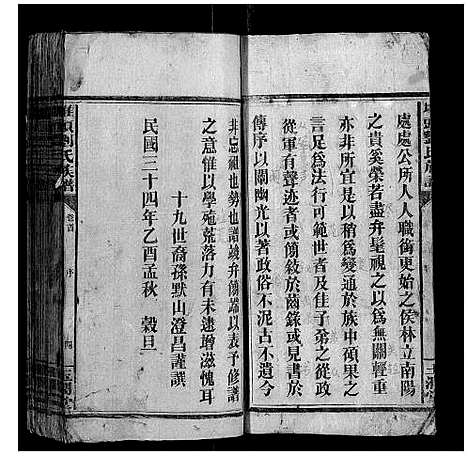 處處公所人人職銜更始之侯林立南陽
之貴奚榮若盡弁髦視之以爲無關輕重
亦非所宜是以稍爲變通於族中碩果之
言足爲法行可範世者及佳子弟之從政
從軍有聲迹者或簡敘於齒錄或見書於
傳序以闡幽光以著政俗不泥古不遺今
非忘祖也勞也譜竣弁簡端以表予修譜
之意惟以學殖荒落力有未逮增滋愧耳
十九世裔孫默山澄昌謹譔
民國三十四年乙酉孟秋 穀旦
劉氏族譜
卷首
序
四